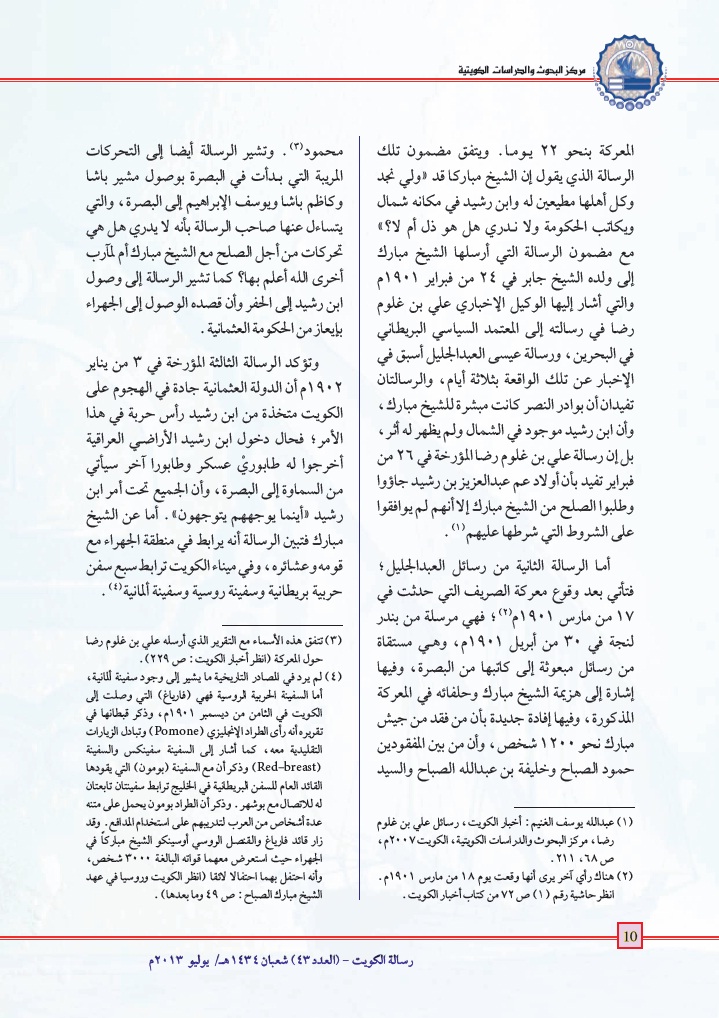 مركز البحوث والدراسات الكويتية
المعركة بنحو ٢٢ يوما. ويتفق مضمون تلك
الرسالة الذي يقول إن الشيخ مباركا قد «ولي نجد
وكل أهلها مطيعين له وابن رشيد في مكانه شمال
ويكاتب الحكومة ولا ندري هل هو ذل أم لا؟»
مع مضمون الرسالة التي أرسلها الشيخ مبارك
إلى ولده الشيخ جابر في ٢٤ من فبراير ١٩٠١م
والتي أشار إليها الوكيل الإخباري علي بن غلوم
رضا في رسالته إلى المعتمد السياسي البريطاني
في البحرين، ورسالة عيسى العبدالجليل أسبق في
الإخبار عن تلك الواقعة بثلاثة أيام، والرسالتان
تفيدان أن بوادر النصر كانت مبشرة للشيخ مبارك،
وأن ابن رشيد موجود في الشمال ولم يظهر له أثر،
بل إن رسالة علي بن غلوم رضا المؤرخة في ٢٦ من
فبراير تفيد بأن أولاد عم عبدالعزيز بن رشيد جاؤوا
وطلبوا الصلح من الشيخ مبارك إلا أنهم لم يوافقوا
على الشروط التي شرطها عليهم(١).
أما الرسالة الثانية من رسائل العبدالجليل؛
فتأتي بعد وقوع معركة الصريف التي حدثت في
١٧ من مارس ١٩٠١م(٢)؛ فهي مرسلة من بندر
لنجة في ٣٠ من أبريل ١٩٠١م، وهي مستقاة
من رسائل مبعوثة إلى كاتبها من البصرة، وفيها
إشارة إلى هزيمة الشيخ مبارك وحلفائه في المعركة
المذكورة، وفيها إفادة جديدة بأن من فقد من جيش
مبارك نحو ١٢٠٠ شخص، وأن من بين المفقودين
حمود الصباح وخليفة بن عبدالله الصباح والسيد
(١) عبدالله يوسف الغنيم: أخبار الكويت، رسائل علي بن غلوم
رضا، مركز البحوث والدراسات الكويتية، الكويت ٢٠٠٧م،
ص ٦٨، ٢١١.
(٢) هناك رأي آخر يرى أنها وقعت يوم ١٨ من مارس ١٩٠١م.
انظر حاشية رقم (١) ص ٧٢ من كتاب أخبار الكويت.
محمود(٣). وتشير الرسالة أيضا إلى التحركات
المريبة التي بدأت في البصرة بوصول مشير باشا
وكاظم باشا ويوسف الإبراهيم إلى البصرة، والتي
يتساءل عنها صاحب الرسالة بأنه لا يدري هل هي
تحركات من أجل الصلح مع الشيخ مبارك أم لمآرب
أخرى الله أعلم بها؟ كما تشير الرسالة إلى وصول
ابن رشيد إلى الحفر وأن قصده الوصول إلى الجهراء
بإيعاز من الحكومة العثمانية.
وتؤكد الرسالة الثالثة المؤرخة في ٣ من يناير
١٩٠٢م أن الدولة العثمانية جادة في الهجوم على
الكويت متخذة من ابن رشيد رأس حربة في هذا
الأمر؛ فحال دخول ابن رشيد الأراضي العراقية
أخرجوا له طابوريْ عسكر وطابورا آخر سيأتي
من السماوة إلى البصرة، وأن الجميع تحت أمر ابن
رشيد «أينما يوجههم يتوجهون». أما عن الشيخ
مبارك فتبين الرسالة أنه يرابط في منطقة الجهراء مع
قومه وعشائره، وفي ميناء الكويت ترابط سبع سفن
حربية بريطانية وسفينة روسية وسفينة ألمانية(٤).
(٣) تتفق هذه الأسماء مع التقرير الذي أرسله علي بن غلوم رضا
حول المعركة (انظر أخبار الكويت: ص ٢٢٩).
(٤) لم يرد في المصادر التاريخية ما يشير إلى وجود سفينة ألمانية،
أما السفينة الحربية الروسية فهي (فارياغ) التي وصلت إلى
الكويت في الثامن من ديسمبر ١٩٠١م، وذكر قبطانها في
تقريره أنه رأى الطراد الإنجليزي (Pomone) وتبادل الزيارات
التقليدية معه، كما أشار إلى السفينة سفينكس والسفينة
(Red-breast) وذكر أن مع السفينة (بومون) التي يقودها
القائد العام للسفن البريطانية في الخليج ترابط سفينتان تابعتان
له للاتصال مع بوشهر. وذكر أن الطراد بومون يحمل على متنه
عدة أشخاص من العرب لتدريبهم على استخدام المدافع. وقد
زار قائد فارياغ والقنصل الروسي أوسينكو الشيخ مباركاً في
الجهراء حيث استعرض معهما قواته البالغة ٣٠٠٠ شخص،
وأنه احتفل بهما احتفالا لائقا (انظر الكويت وروسيا في عهد
الشيخ مبارك الصباح: ص ٤٩ وما بعدها).
10
رسالة الكويت - (العدد ٤٣) شعبان ١٤٣٤هـ/ يوليو ٢٠١٣م